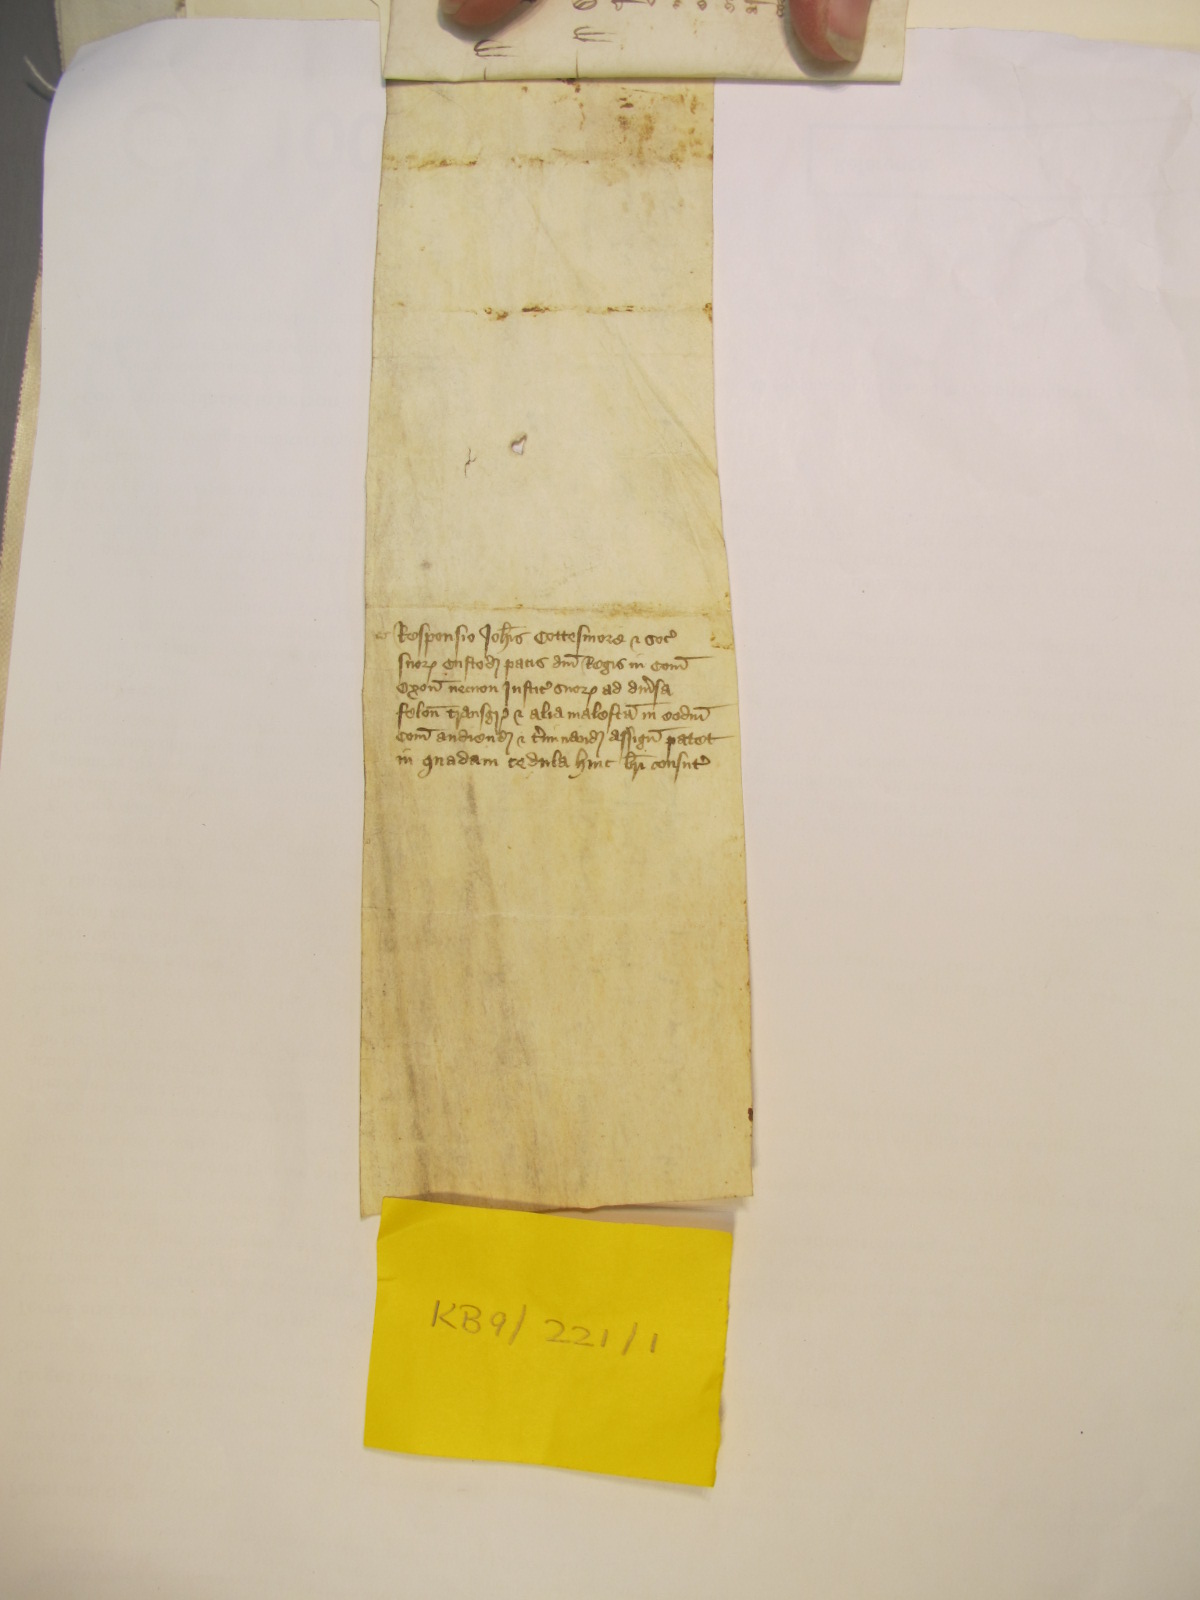 Responsio Joh̄is Cottesmore ⁊ soc̓
suoꝝ Custod̛ pacis dn̄i Regis in Com̄
Oxon̄ necnon Justic̓ suoꝝ ad diu̓sa
felon̄ transgr̓ ⁊ alia malefc̄a in eodm̄
Com̄ audiend̛ ⁊ t̓minand̛ assign̄ patet
in quadam cedula huic br̄i consut̓
KB9/221/1